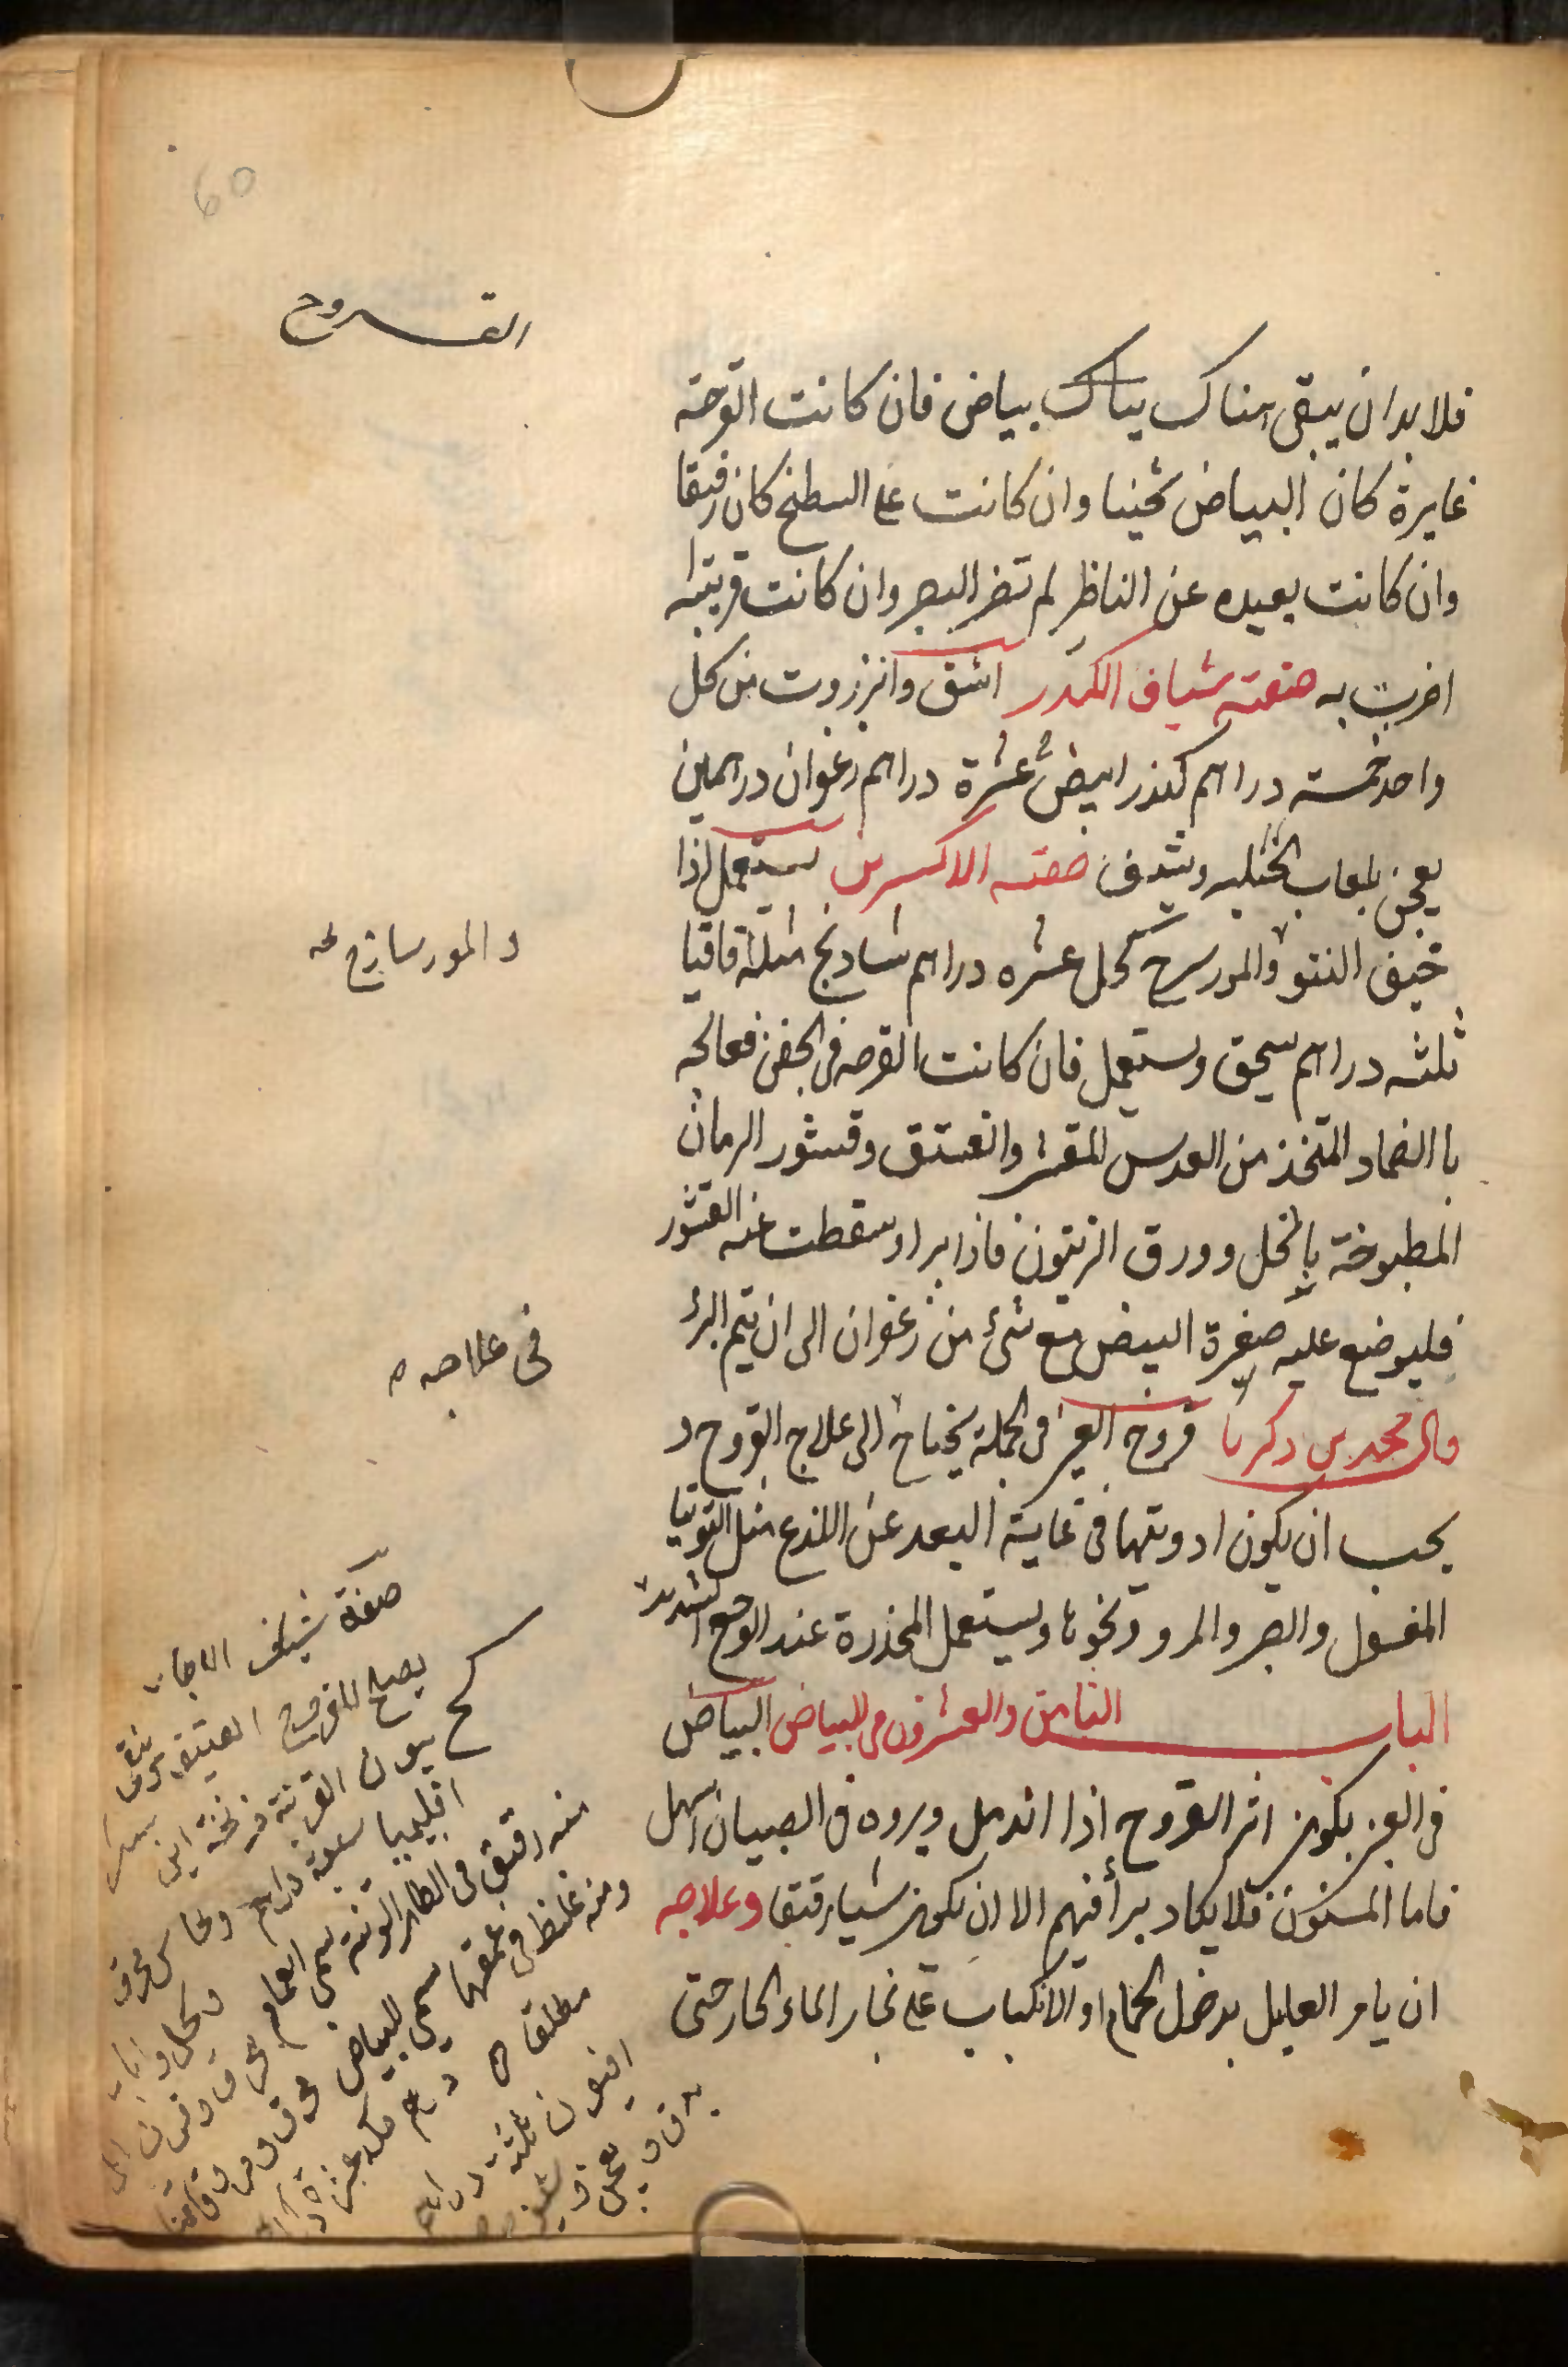 60
القروح
فلا بد ان يبقى هناك بياض فان كانت القرحة
غايرة كان البياض ثخينا وان كانت على السطح كان رقيقا
وان كانت بعيده عن الناظر لم تضر البصر وان كانت قريبة
اضرت به صفة شياف الكندر اشق وانزروت من كل
واحد خمسة دراهم كندر ابيض عشرة دراهم زعفران درهمين
يعجن بلعاب الحلبه ويشيف صفة الاكسرين يستعمل اذا
خيف النتو والمورسرج كحل عشره دراهم شادنج مثله اقاقيا
ثلثه دراهم يسحق ويستعمل فان كانت القرحه في الجفن فعالجه
باالضماد المتخذ من العدس المقشر والفستق وقشور الرمان
المطبوخة بالخل وورق الزيتون فاذا برا وسقطت عنه القشور
فليوضع عليه صفرة البيض مع شئ من زعفران الى ان يتم البرء
قال محمد بن زكريا قروح العين في الجملة يحتاج الى علاج القروح و
يجب ان يكون ادويتها في غاية البعد عن اللذع مثل التوتيا
المغسول والصبر والمرو ونحوها ويستعمل المخدرة عند الوجع الشديد
الباب الثامن والعشرون في البياض البياض
في العين يكون اثر القروح اذا اندمل وبروه في الصبيان اسهل
فاما المسنون فلا يكاد يبرأ فيهم الا ان يكون شيا رقيقا وعلاجه
ان يامر العليل بدخول الحمام او الانكباب على بخار الماء الحار حتى
و المورسازج
في علاجه
صفة شياف
يصلح للقروح العتيقه
اقليميا سبعة دراهم ونحاس محرق
منه رقيق في الظاهر
ومنه غليظ في عمقها يسمى البياض
مطلقا
افيون ثلثة دراهم
يدق ويعجن